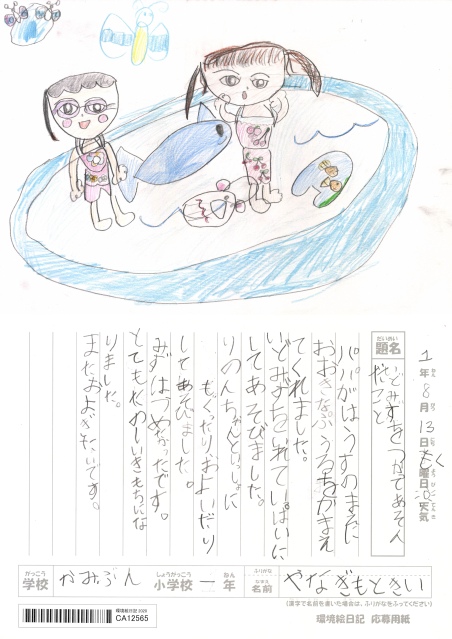 1年8月13日もく曜日 天気
だいめい
題名
いどみずをつかてあそん
だこと
パパがはうすのまえに
おおきなぷうるおかまえ
てくれました。
いどみずをいれていぱいに
してあそびました。
りのんちゃんといっしょに
もぐったりおよいだり
してあそびました。
みずはつめたかったです。
とてもたのしいきもちにな
りました。
またおよぎたいです。
がっこう
学校
かみぶん
しょうがっこう
小学校
一
ねん
年
ふりがな
なまえ
名前
やなぎもときい
(漢字で名前を書いた場合は、ふりがなをふってください)
環境絵日記 2020
CA12565
環境絵日記 応募用紙